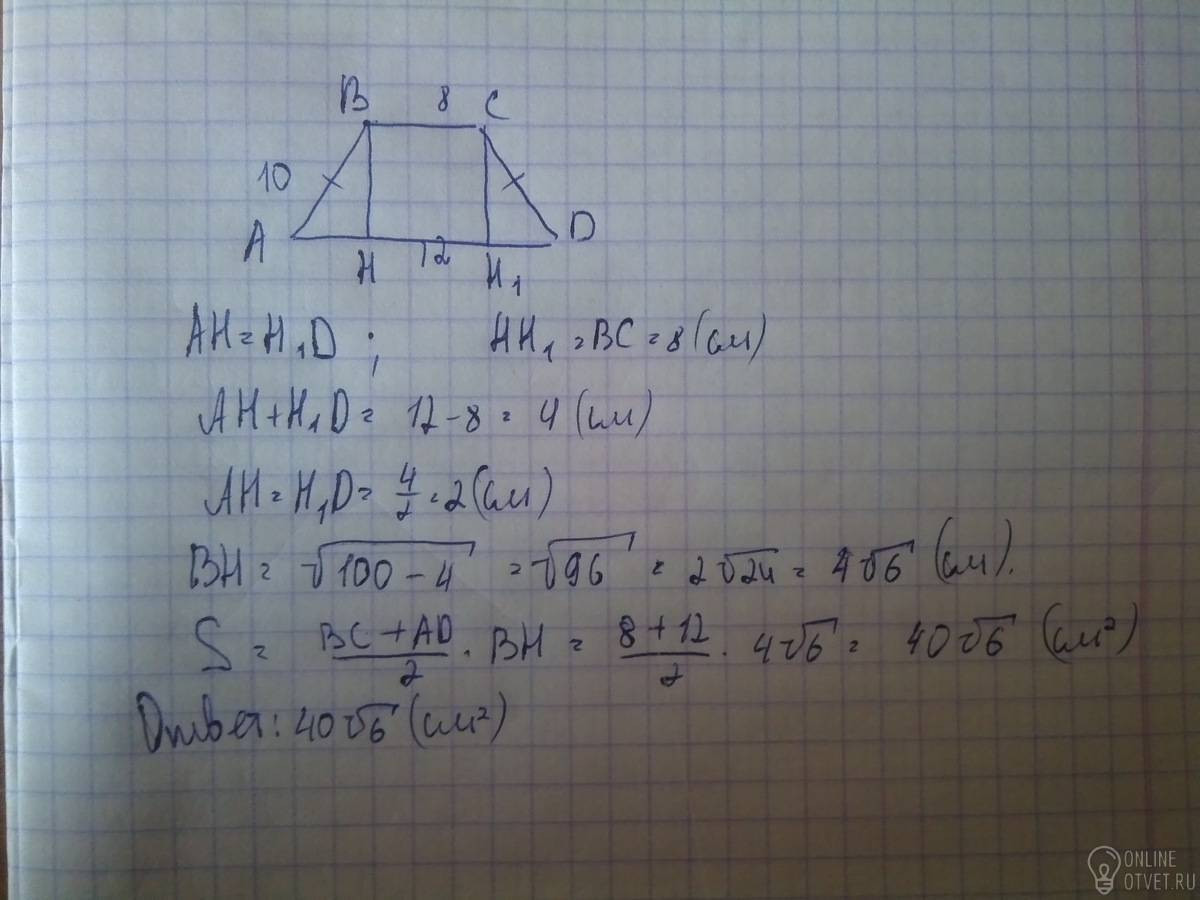 B 8 C
10
A H 12 H₁ D
AH = H₁D ; HH₁ = BC = 8 (см)
AH + H₁D = 12 - 8 = 4 (см)
AH = H₁D = 4/2 = 2 (см)
BH = √(100 - 4) = √96 = 2√24 = 4√6 (см).
S = (BC + AD)/2 · BH = (8 + 12)/2 · 4√6 = 40√6 (см²)
Ответ: 40√6 (см²)
ONLINE
OTVET.RU